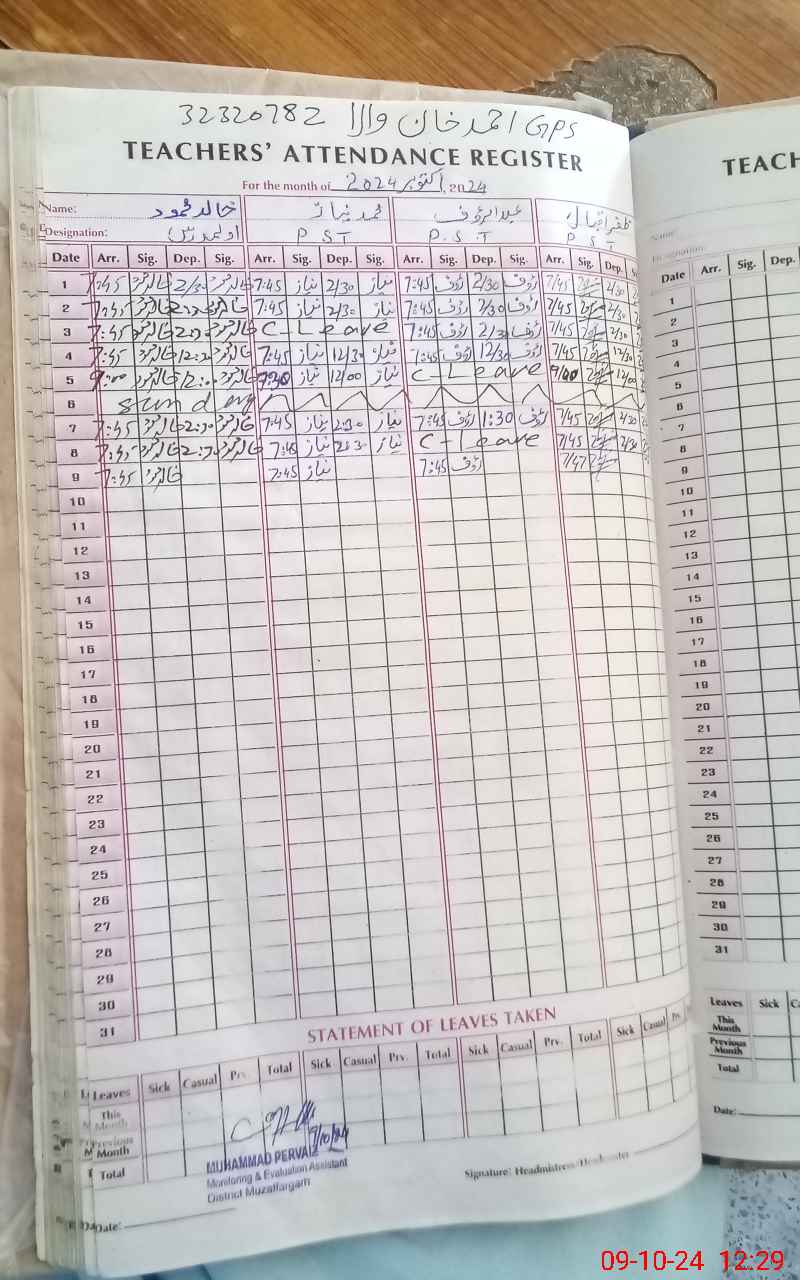 32320782 احمد خان والا GPS
TEACHERS' ATTENDANCE REGISTER
For the month of 2024 اکتوبر, 2024
Name: خالد محمود محمد نیاز عبدالرؤف ظفر اقبال
Designation: اول مدرس P.S.T P.S.T P.S.T
Date Arr. Sig. Dep. Sig. Arr. Sig. Dep. Sig. Arr. Sig. Dep. Sig. Arr. Sig. Dep.
1 7:45 خالد محمود 2/30 خالد محمود 7:45 نیاز 2/30 نیاز 7:45 رؤف 2/30 رؤف 7/45 2/30
2 7:45 خالد محمود 2:30 خالد محمود 7:45 نیاز 2/30 نیاز 7:45 رؤف 2/30 رؤف 7/45 2/30
3 7:45 خالد محمود 2:30 خالد محمود C-Leave 7:45 رؤف 2/30 رؤف 7/45 2/30
4 7:45 خالد محمود 12:30 خالد محمود 7:45 نیاز 12/30 نیاز 7:45 رؤف 12/30 رؤف 7/45 12/30
5 9:00 خالد محمود 12:00 خالد محمود 7:30 نیاز 12/00 نیاز C-Leave 9/00 12/00
6 sunday
7 7:45 خالد محمود 2:30 خالد محمود 7:45 نیاز 2:30 نیاز 7:45 رؤف 1:30 رؤف 7/45 2/30
8 7:45 خالد محمود 2:30 خالد محمود 7:45 نیاز 2:30 نیاز C-Leave 7/45 2/30
9 7:45 خالد محمود 7:45 نیاز 7:45 رؤف 7/47
10
11
12
13
14
15
16
17
18
19
20
21
22
23
24
25
26
27
28
29
30
31
STATEMENT OF LEAVES TAKEN
Leaves Sick Casual Prv. Total Sick Casual Prv. Total Sick Casual Prv. Total Sick Casual Prv.
This Month
Previous Month
Total
9/10/24
MUHAMMAD PERVAIZ
Monitoring & Evaluation Assistant
District Muzaffargarh
Signature: Headmistress/Headmaster
Date:
TEACH
Name:
Designation:
Date Arr. Sig. Dep.
1
2
3
4
5
6
7
8
9
10
11
12
13
14
15
16
17
18
19
20
21
22
23
24
25
26
27
28
29
30
31
Leaves Sick
This Month
Previous Month
Total
Date:
09-10-24 12:29